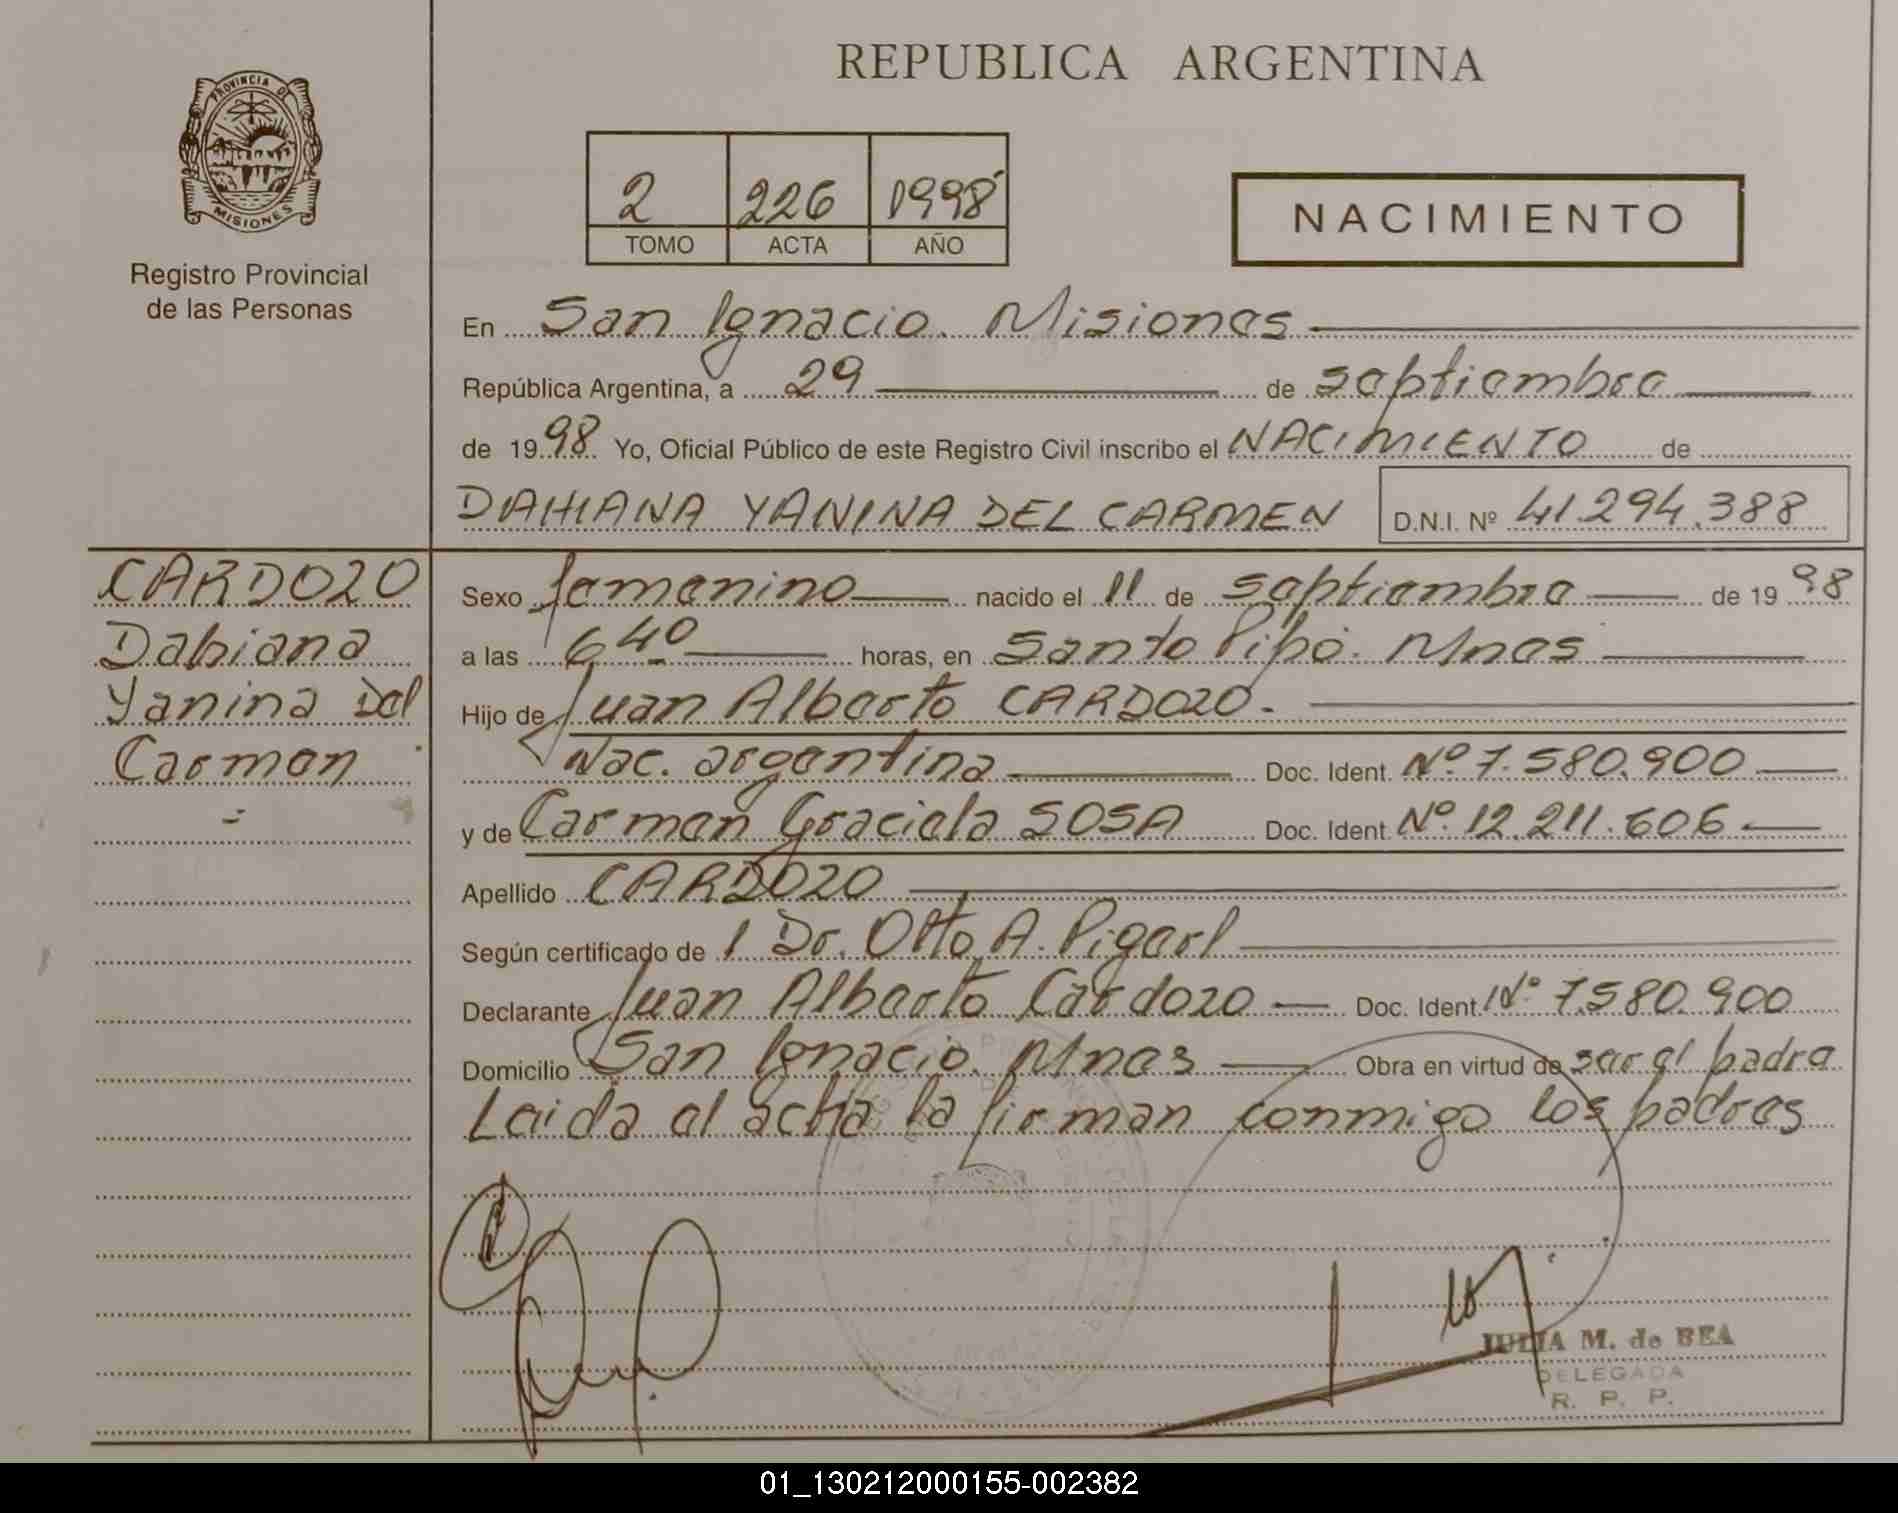 PROVINCIA DE
MISIONES
Registro Provincial
de las Personas
REPUBLICA ARGENTINA
2 226 1998
TOMO ACTA AÑO
NACIMIENTO
En San Ignacio. Misiones
República Argentina, a 29 de septiembre
de 1998 Yo, Oficial Público de este Registro Civil inscribo el NACIMIENTO de
DAHIANA YANINA DEL CARMEN D.N.I. Nº 41.294.388
CARDOZO
Dahiana
Yanina Del
Carmen
Sexo femenino nacido el 11 de septiembre de 1998
a las 6 40 horas, en Santo Pipó. Mnes
Hijo de Juan Alberto CARDOZO.
Nac. argentina Doc. Ident. Nº 7.580.900
y de Carmen Graciela SOSA Doc. Ident. Nº 12.211.606
Apellido CARDOZO
Según certificado de 1 Dr. Otto A.
Declarante Juan Alberto Cardozo Doc. Ident. Nº 7.580.900
Domicilio San Ignacio. Mnes Obra en virtud de ser el padre
Leida el acta la firman conmigo los padres
JULIA M. de BEA
DELEGADA
R. P. P.
01_130212000155-002382